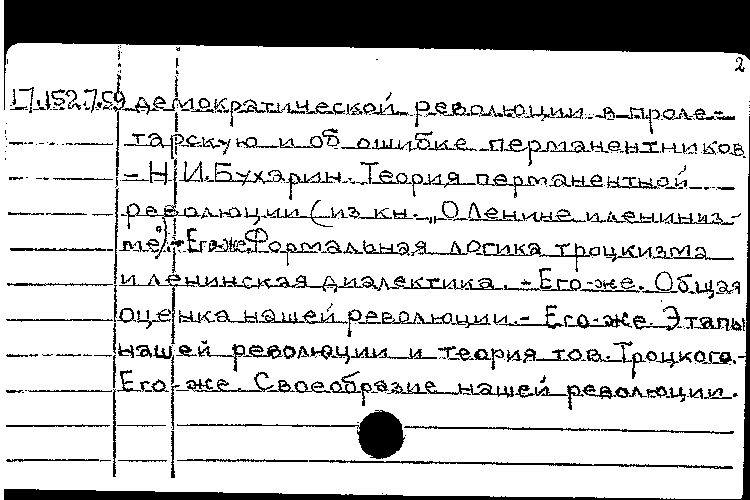 2
17.152.7.59 демократической революции в проле-
тарскую и об ошибке перманентников
- Н.И.Бухарин. Теория перманентной
революции (из кн. „О Ленине и лениниз-
ме"). - Его-же. Формальная логика троцкизма
и ленинская диалектика. - Его-же. Общая
оценка нашей революции. - Его-же. Этапы
нашей революции и теория тов. Троцкого. -
Его-же. Своеобразие нашей революции.